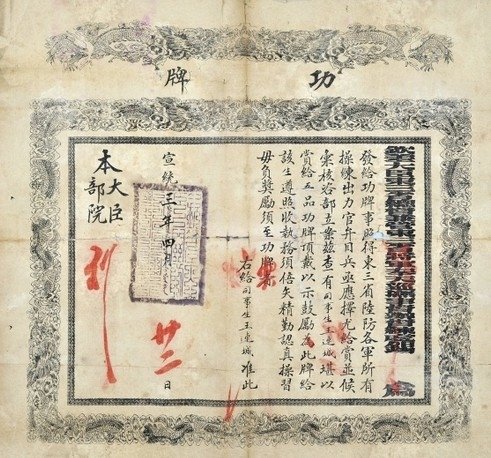 功牌
為
發給功牌事照得東三省陸防各軍所有
操練出力官弁目兵亟應擇尤給賞並候
彙核咨部立案茲查有司事生王連城堪以
賞給五品功牌頂戴以示鼓勵為此牌給
該生遵照收執務須倍矢精勤認真操習
毋負獎勵須至功牌者
右給司事生王連城准此
宣統三年四月廿二日
本大臣部院